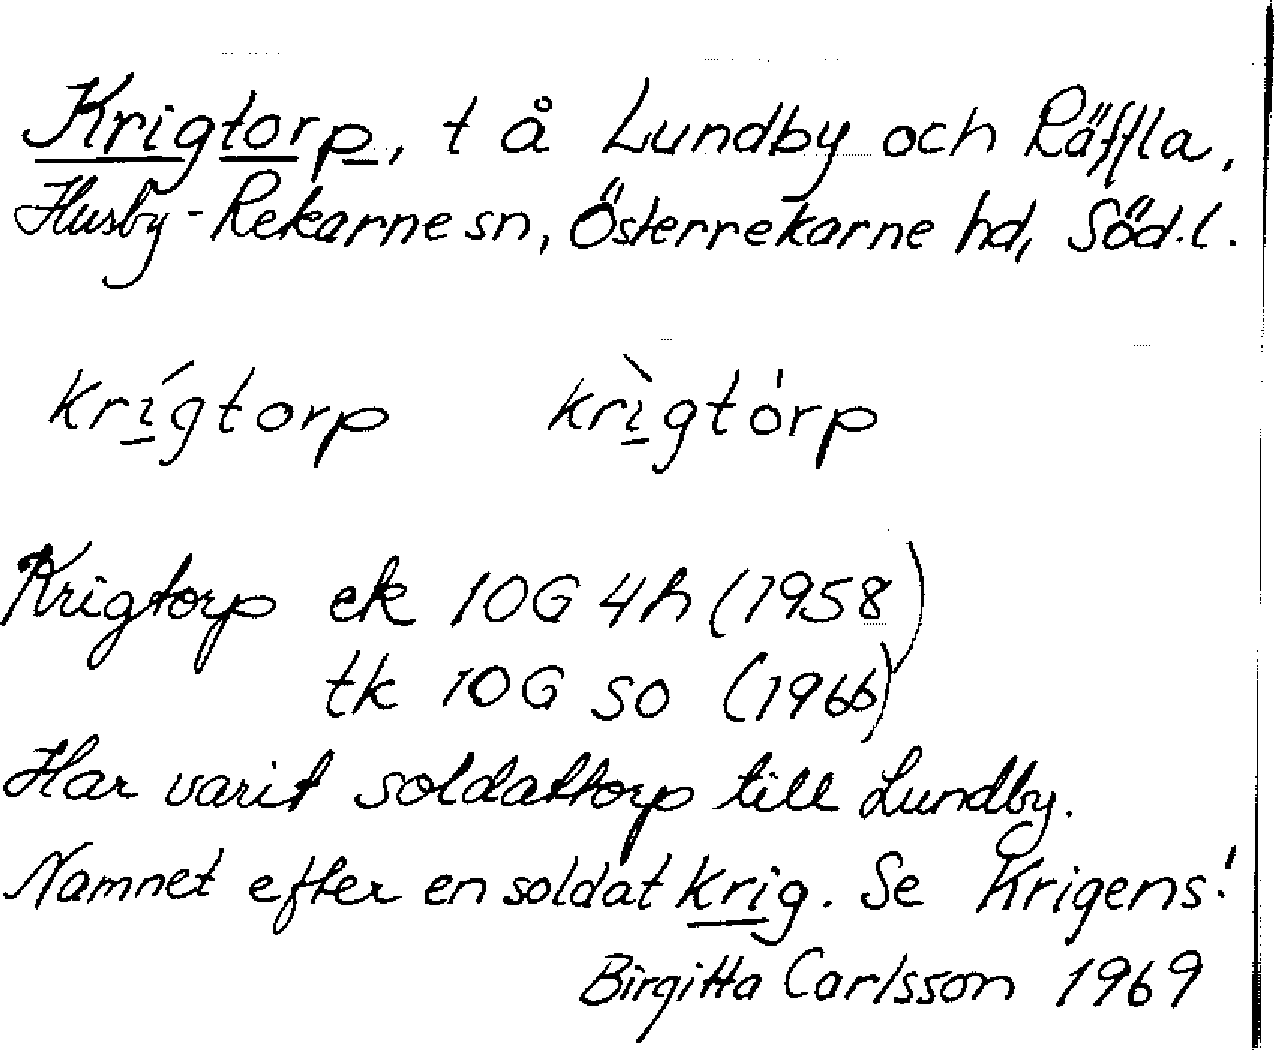 Krigtorp, t å Lundby och Räffla,
Husby-Rekarne sn, Österrekarne hd, Söd.l.
krígtorp krìgtórp
Krigtorp ek 10G 4h (1958)
tk 10G SO (1966)
Har varit soldattorp till Lundby.
Namnet efter en soldat Krig. Se Krigens!
Birgitta Carlsson 1969